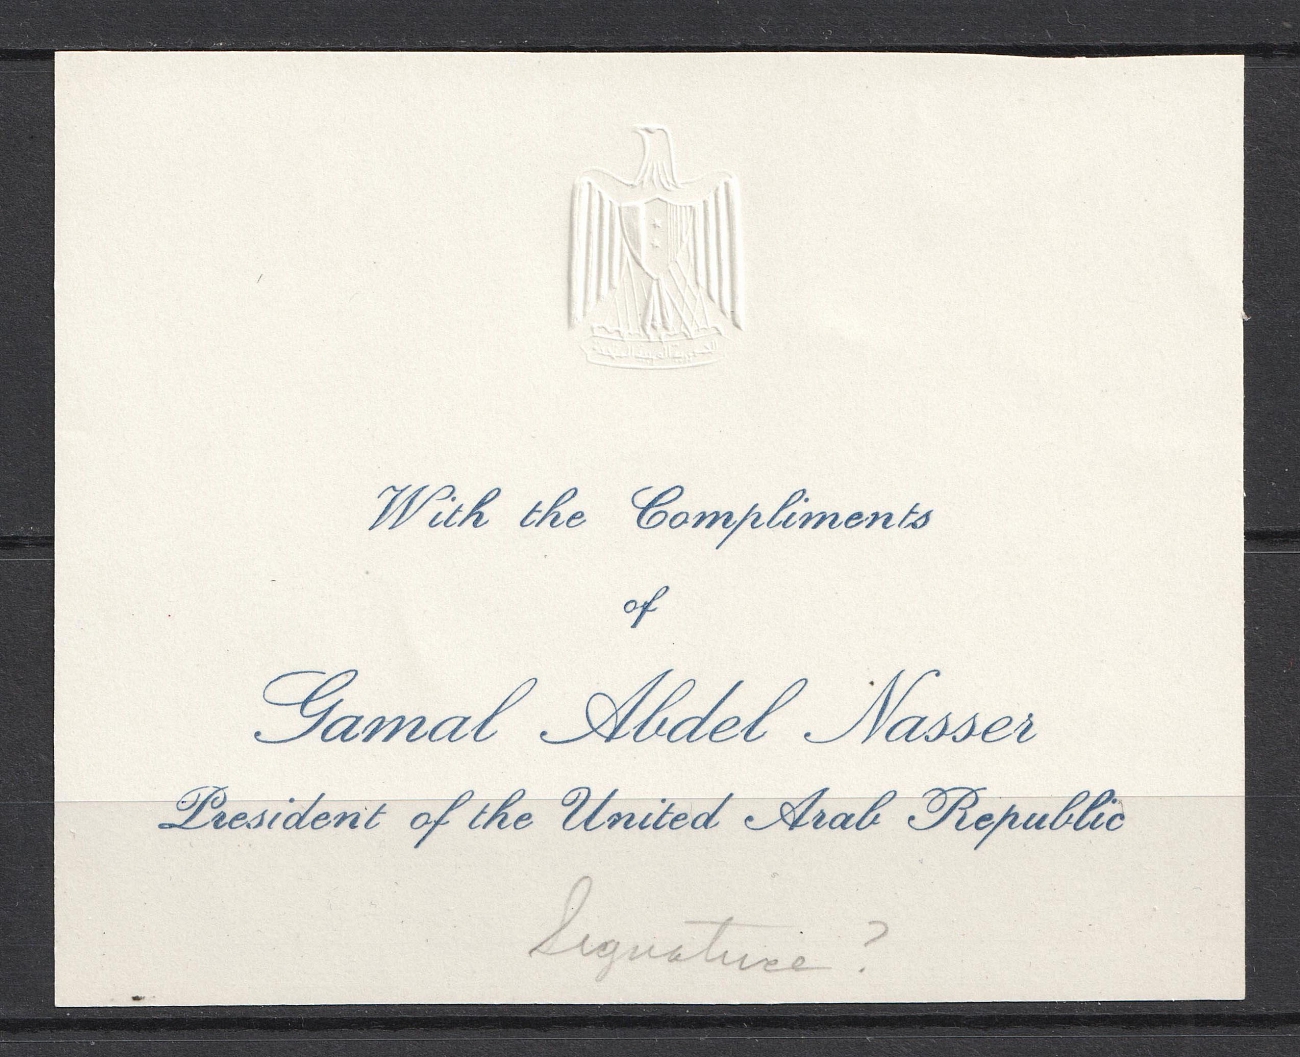 الجمهورية العربية المتحدة
With the Compliments
of
Gamal Abdel Nasser
President of the United Arab Republic
Signature ?